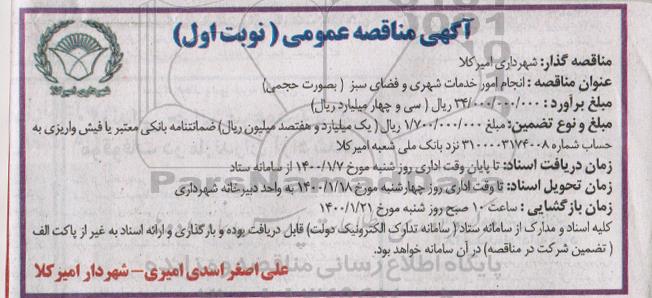 آگهی مناقصه عمومی ( نوبت اول)
شهرداری امیرکلا
مناقصه گذار: شهرداری امیرکلا
عنوان مناقصه : انجام امور خدمات شهری و فضای سبز ( بصورت حجمی)
مبلغ برآورد : ۳۴/۰۰۰/۰۰۰/۰۰۰ ریال ( سی و چهار میلیارد ریال)
مبلغ و نوع تضمین: مبلغ ۱/۷۰۰/۰۰۰/۰۰۰ ریال ( یک میلیارد و هفتصد میلیون ریال) ضمانتنامه بانکی معتبر یا فیش واریزی به
حساب شماره ۳۱۰۰۰۰۳۱۷۴۰۰۸ نزد بانک ملی شعبه امیرکلا
زمان دریافت اسناد: تا پایان وقت اداری روز شنبه مورخ ۱۴۰۰/۱/۷ از سامانه ستاد
زمان تحویل اسناد: تا وقت اداری روز چهارشنبه مورخ ۱۴۰۰/۱/۱۸ به واحد دبیرخانه شهرداری
زمان بازگشایی : ساعت ۱۰ صبح روز شنبه مورخ ۱۴۰۰/۱/۲۱
کلیه اسناد و مدارک از سامانه ستاد ( سامانه تدارک الکترونیک دولت) قابل دریافت بوده و بارگذاری و ارائه اسناد به غیر از پاکت الف
( تضمین شرکت در مناقصه) در آن سامانه خواهد بود.
علی اصغر اسدی امیری – شهردار امیرکلا
پایگاه اطلاع رسانی مناقصه و مزایده